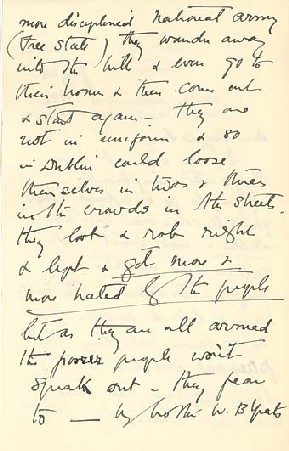 more disciplined National army
(Free State) they wander away
into the hills & even go to
their homes & then come out
& start again – they are
not in uniform & so
in Dublin could loose
themselves in twos & threes
in the crowds in the streets.
they loot & rob right
& left & get more &
more hated by the people
but as they are all armed
the poorer people wont
speak out – they fear
to — my brother W. B Yeats